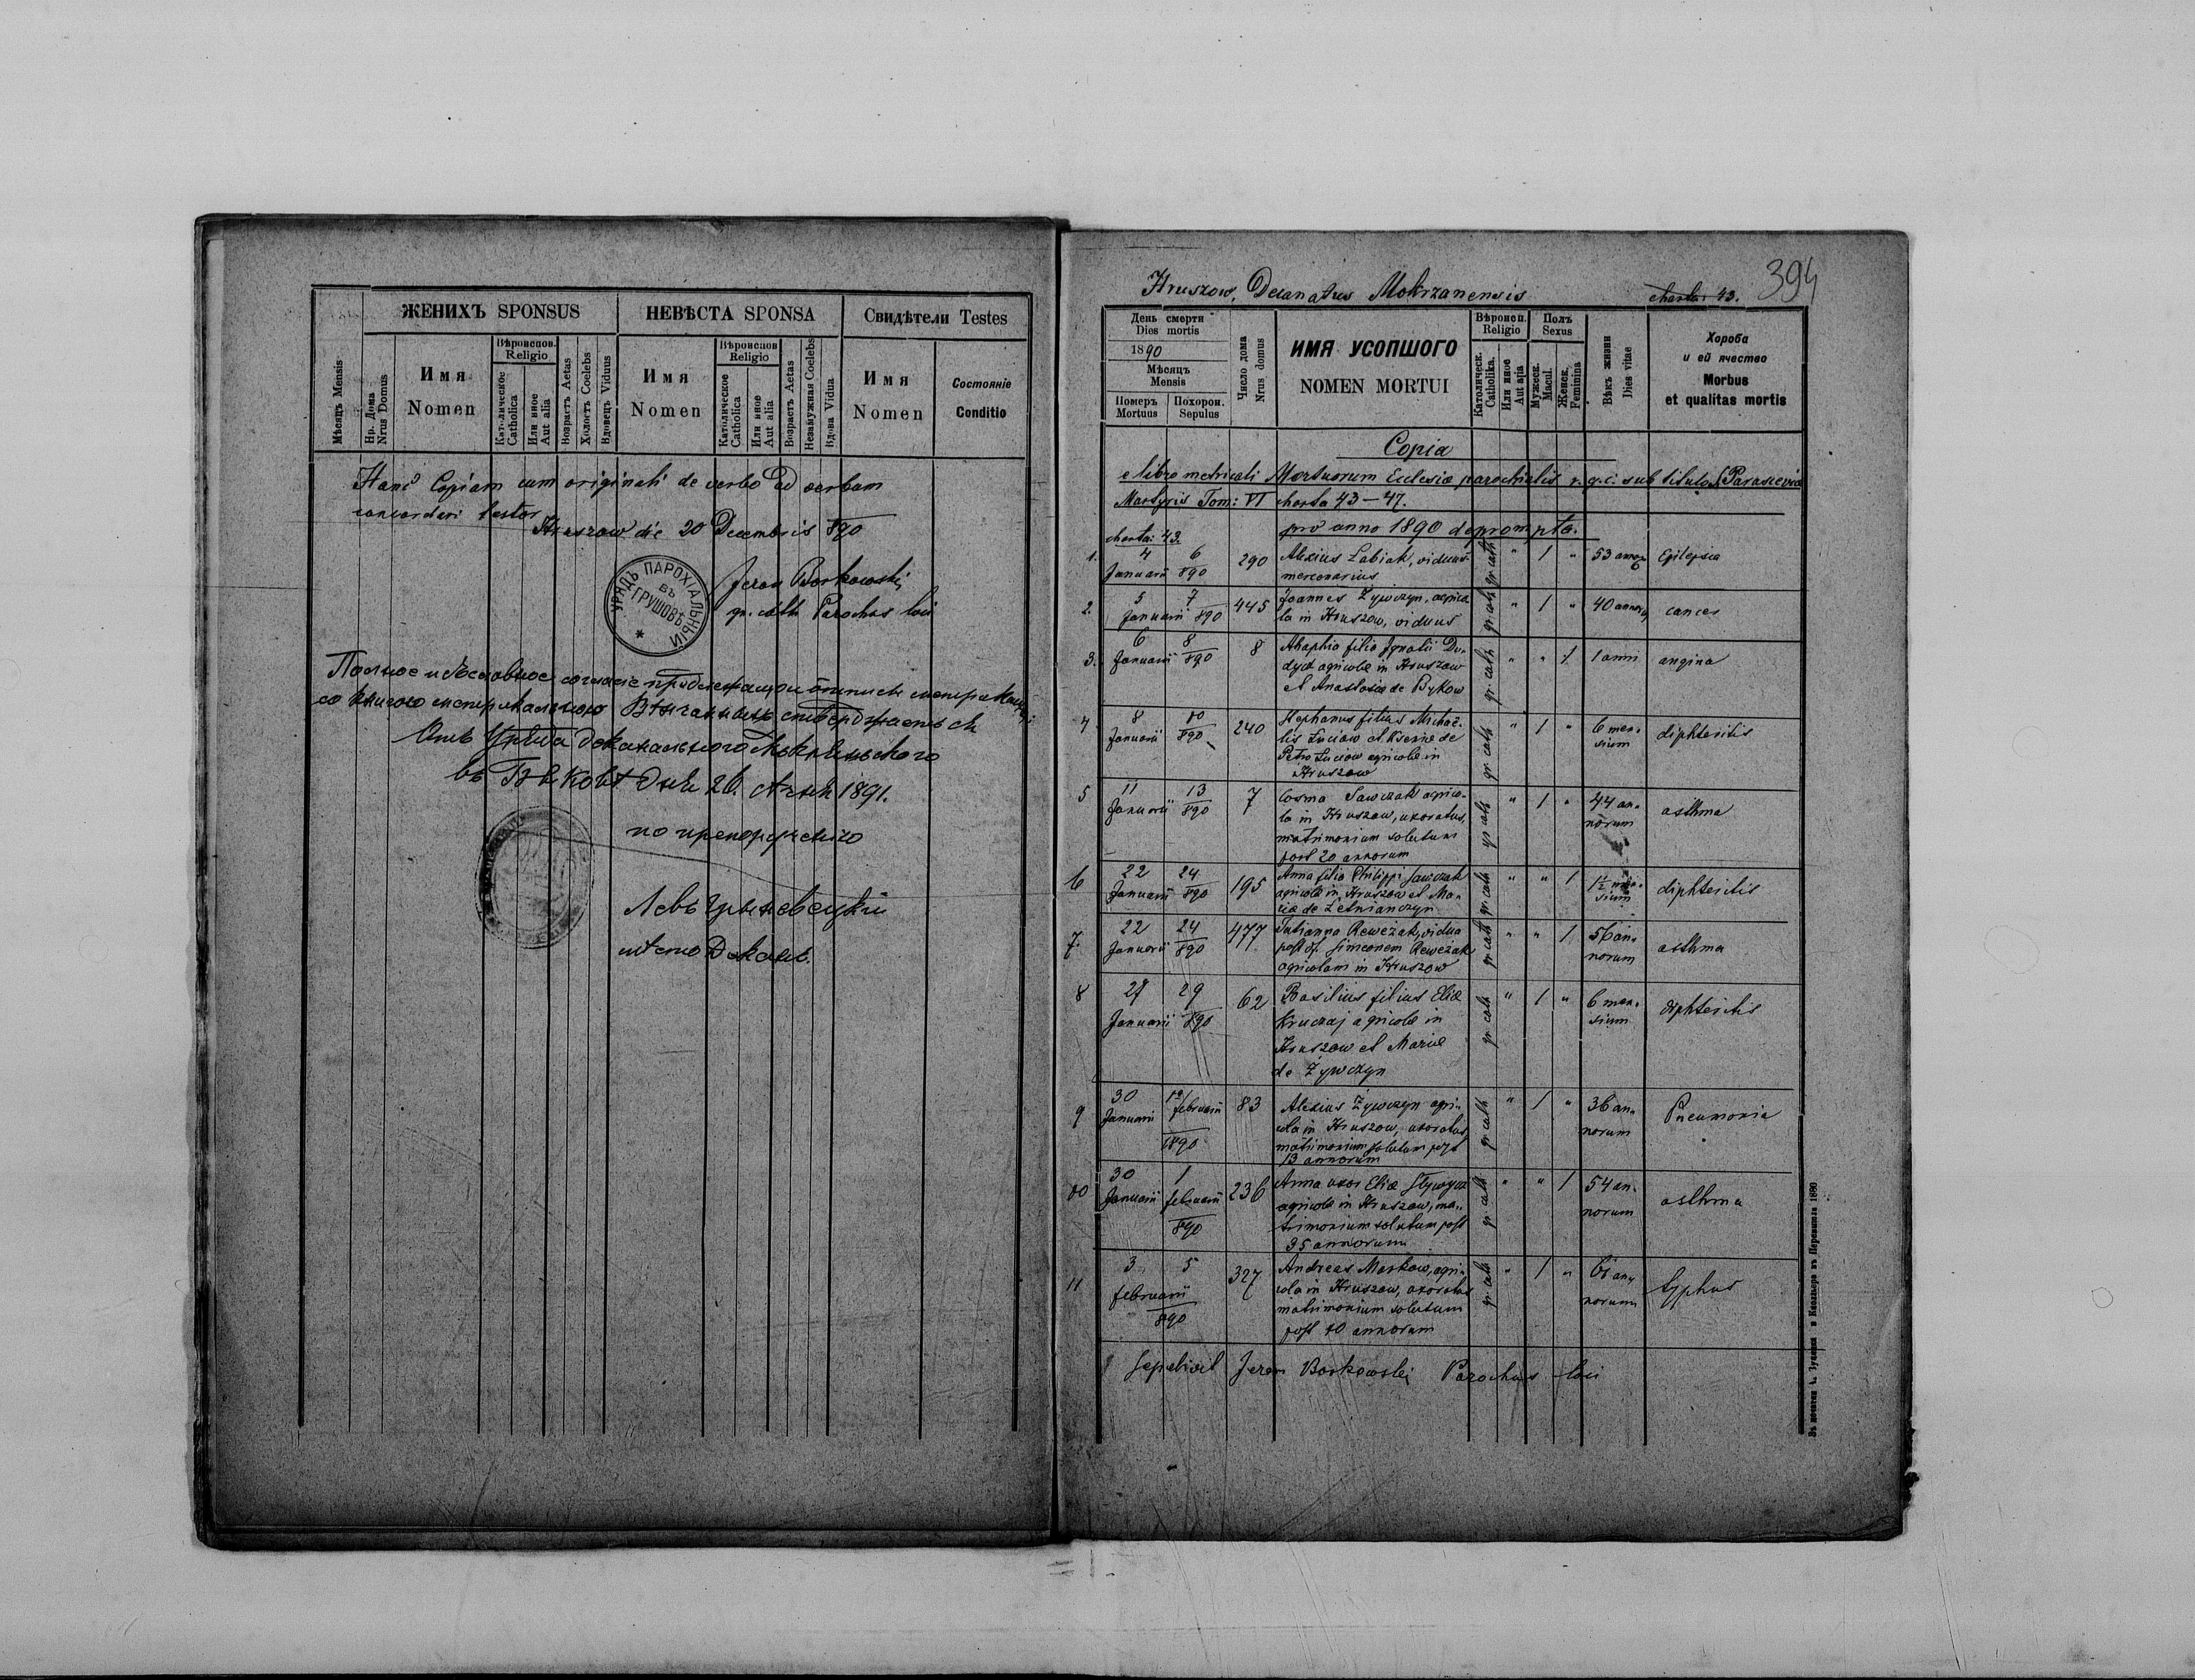 ЖЕНИХЪ SPONSUS
НЕВѢСТА SPONSA
Свидѣтели Testes
Мѣсяць Mensis
Нр. Дома
Nrus Domus
Имя
Nomen
Вѣроиспов.
Religio
Католическое
Catholica
Или иное
Aut alia
Возрастъ Aetas
Холостъ Coelebs
Вдовецъ Viduus
Имя
Nomen
Вѣроиспов
Religio
Католическое
Catholica
Или иное
Aut alia
Возрастъ Aetas
Незамужная Coelebs
Вдова Vidua
Имя
Nomen
Состояніе
Conditio
Hanc Copiam cum originali de verbo ad verbum
concordari testor
Hruszow die 20 Decembris 890
Jeron Borkowski
gr. cath Parochus loci
УРЯДЪ ПАРОХІАЛЬНЫЙ
ВЪ
ГРУШОВѢ
Отъ Уряда деканального
въ дня 26. 1891.
по препорученію
Левъ
мѣсто Деканъ.
394
Hruszow, Decanatus Mokrzanensis
charta: 43.
День смерти
Dies mortis
1890
Мѣсяцъ
Mensis
Померъ
Mortuus
Похорон.
Sepulus
Число дома
Nrus domus
ИМЯ УСОПШОГО
NOMEN MORTUI
Вѣроисп.
Religio
Католическ.
Catholika.
Или иное
Aut alia
Полъ
Sexus
Мужеск.
Macul.
Женск.
Feminina
Вѣкъ жизни
Dies vitae
Хороба
и ей ячество
Morbus
et qualitas mortis
Copia
e libro metricali Mortuorum Ecclesiæ parochialis r. g. c. sub titulo S. Parasceviæ
Martyris Tom: VI charta 43 – 47.
pro anno 1890 deprompta.
charta: 43.
1. 4 6 290 Alexius Labiak, viduus gr. cath " 1 " 53 annor Epilepsia
Januarii 890 mercenarius
2. 5 7 445 Joannes Zywczyn, agrico gr. cath " 1 " 40 annor cancer
Januarii 890 la in Hruszow, viduus
3. 6 8 8 Ahaphia filia Ignatii Du- gr. cath " " 1 1 anni angina
Januarii 890 dycz agricolæ in Hruszow
et Anastasiæ de Bykow
4 8 10 240 Stephanus filius Michaë- gr. cath " 1 " 6 men- diphteritis
Januarii 890 lis Luciow et Kseniæ de sium
Petro Luciow agricolæ in
Hruszow
5 11 13 7 Cosma Sawczak agrico- gr. cath " 1 " 44 an- asthma
Januarii 890 la in Hruszow, uxoratus, norum
matrimonium solutum
post 20 annorum
6 22 24 195 Anna filia Philippi Sawczak gr. cath " " 1 1½ men- diphteritis
Januarii 890 agricolæ in Hruszow et Ma- sium
riæ de Letnianczyn
7. 22 24 477 Tatianna Rewezak, vidua gr. cath " " 1 56 an- asthma
Januarii 890 post Simeonem Rewezak norum
agricolam in Hruszow
8 27 29 62 Basilius filius Eliæ gr. cath " 1 " 6 men- diphteritis
Januarii 890 Kruczaj agricolæ in sium
Hruszow et Mariæ
de Zywczyn
9 30 1 februarii 83 Alexius Zywczyn agri- gr. cath " 1 " 36 an- Pneumonia
Januarii 1890 cola in Hruszow, uxoratus, norum
matrimonium solutum post
13 annorum
10 30 1 236 Anna uxor Eliæ gr. cath " " 1 54 an- asthma
Januarii februarii agricolæ in Hruszow, ma- norum
890 trimonium solutum post
35 annorum
11 3 5 327 Andreas Markow, agri- gr. cath " 1 " 61 an- typhus
februarii cola in Hruszow, uxoratus norum
890 matrimonium solutum
post 40 annorum
Sepelivit Jeron Borkowski Parochus loci